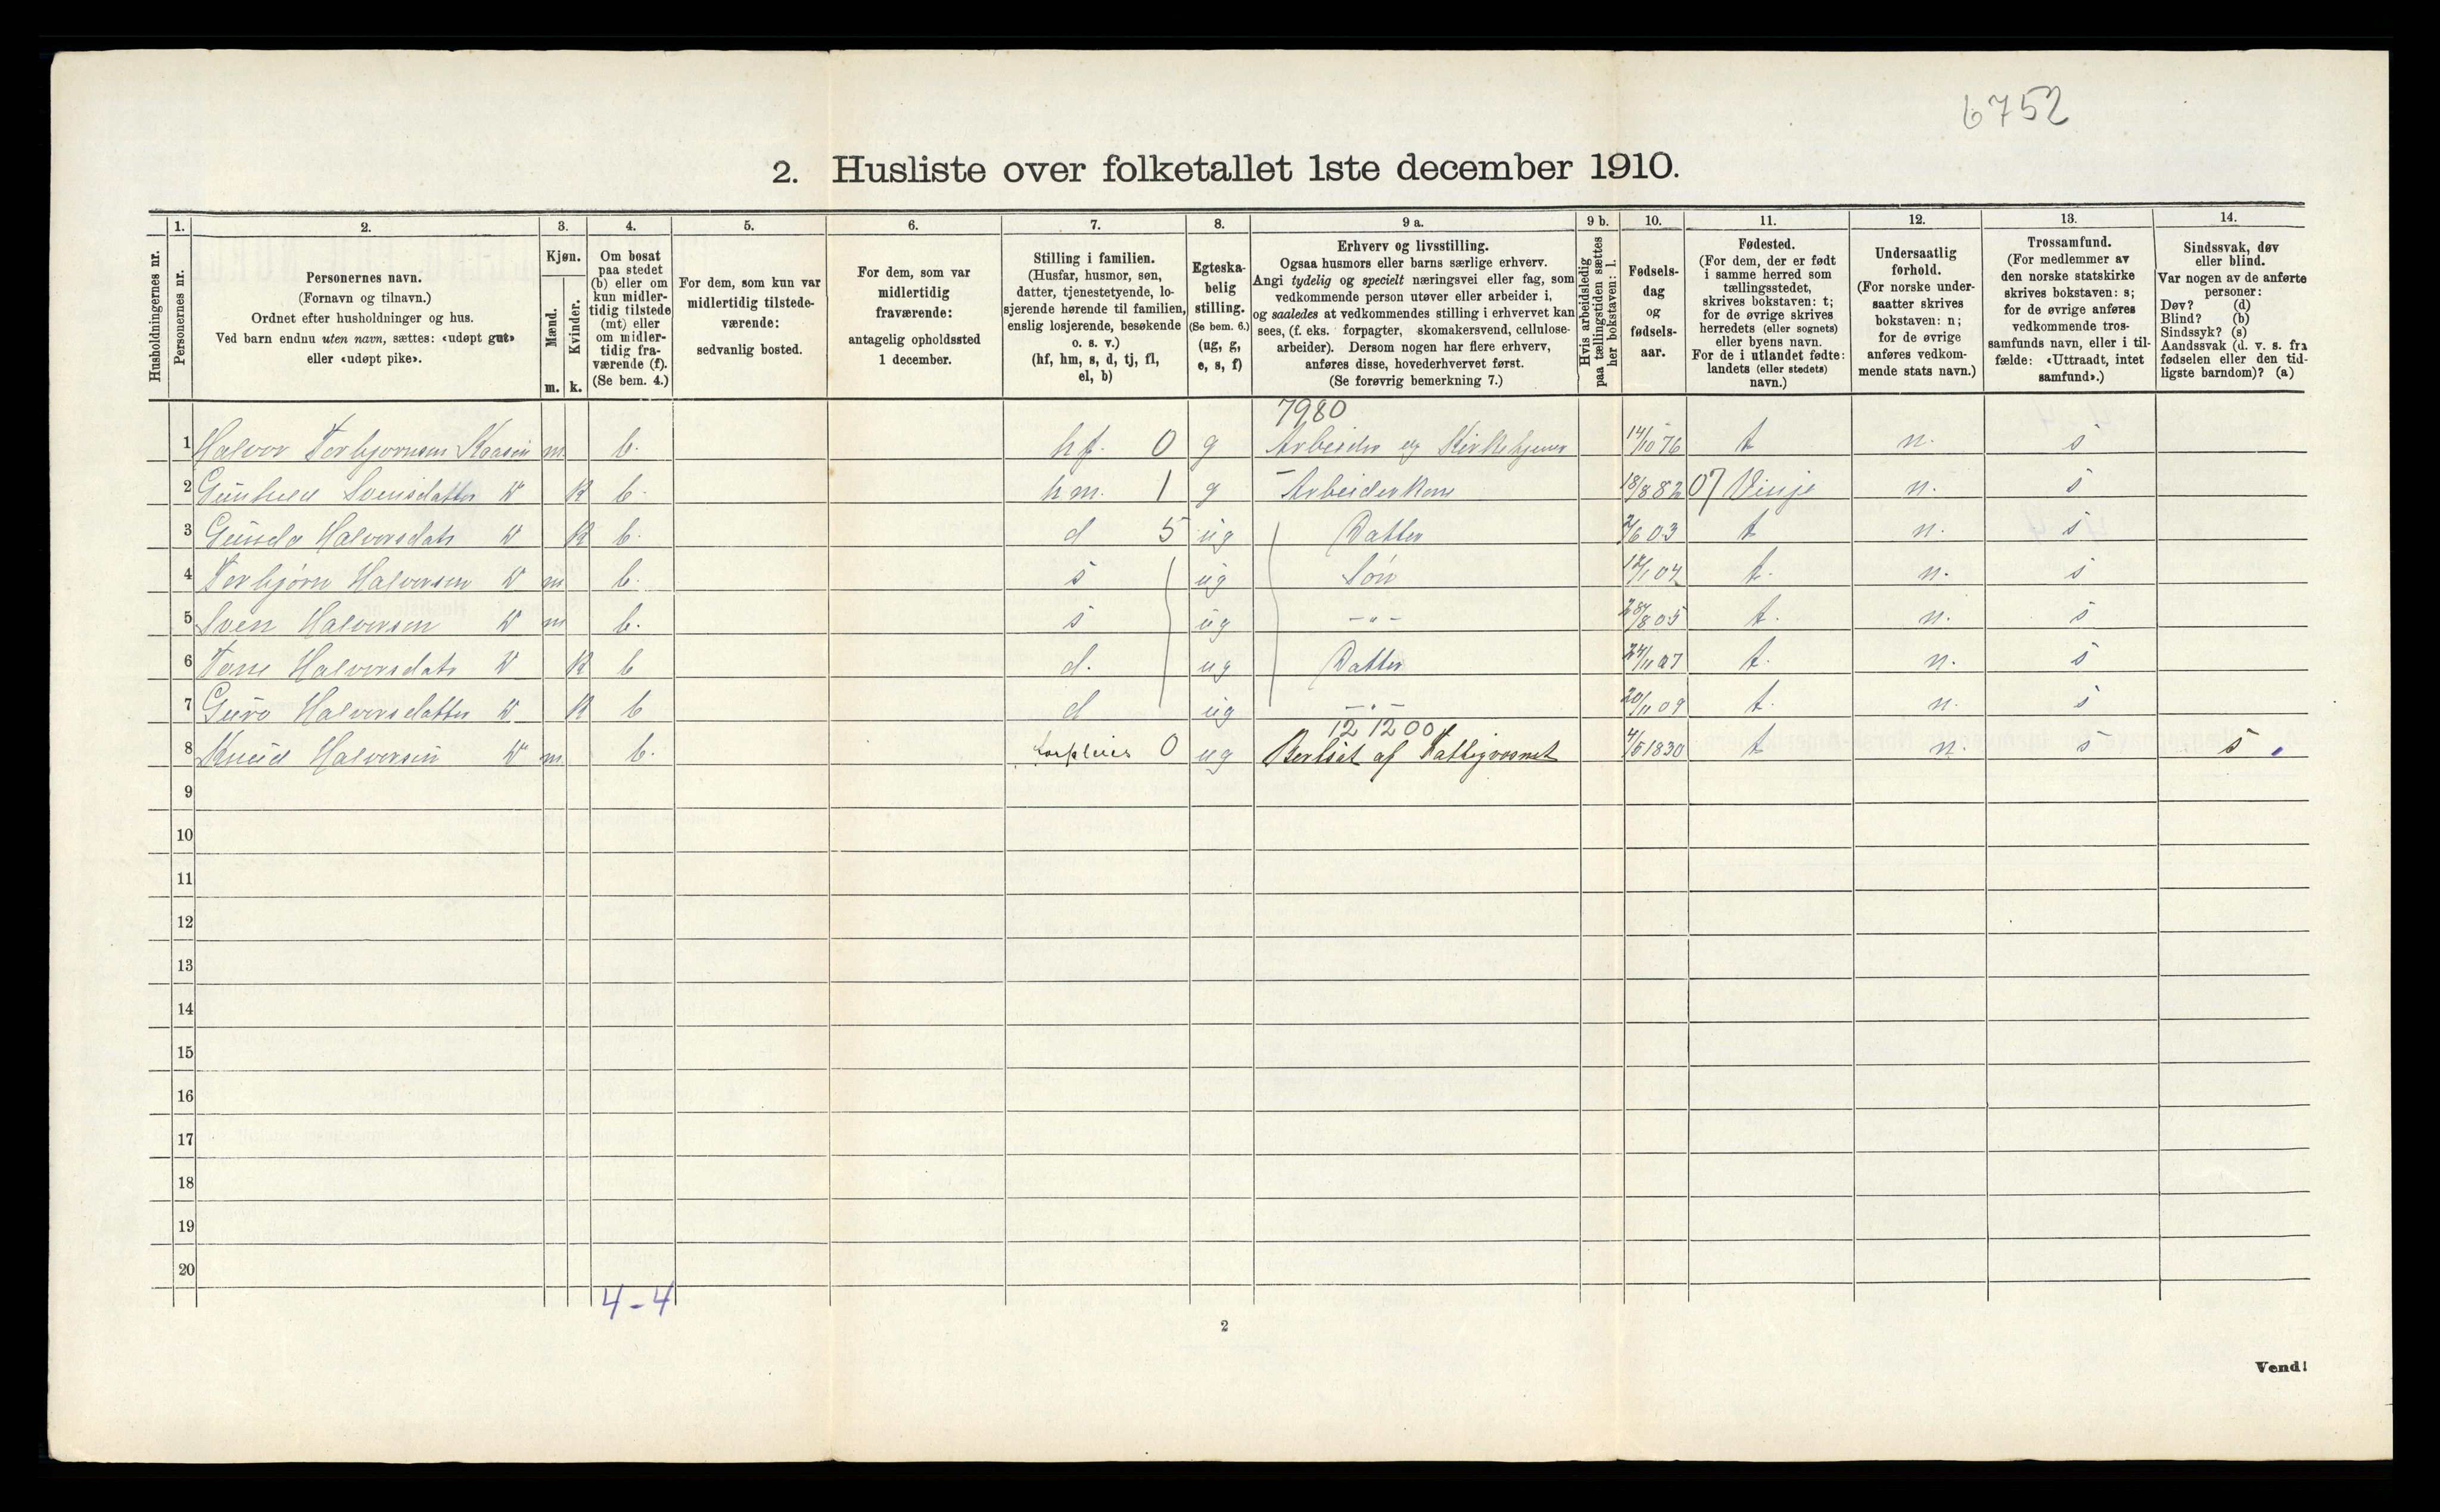 6752
2. Husliste over folketallet 1ste december 1910.
Husholdningernes nr.
1.
Personernes nr.
2.
Personernes navn.
(Fornavn og tilnavn.)
Ordnet efter husholdninger og hus.
Ved barn endnu uten navn, sættes: «udøpt gut»
eller «udøpt pike».
3.
Kjøn.
Mænd.
Kvinder.
m. k.
4.
Om bosat
paa stedet
(b) eller om
kun midler-
tidig tilstede
(mt) eller
om midler-
tidig fra-
værende (f).
(Se bem. 4.)
5.
For dem, som kun var
midlertidig tilstede-
værende:
sedvanlig bosted.
6.
For dem, som var
midlertidig
fraværende:
antagelig opholdssted
1 december.
7.
Stilling i familien.
(Husfar, husmor, søn,
datter, tjenestetyende, lo-
sjerende hørende til familien,
enslig losjerende, besøkende
o. s. v.)
(hf, hm, s, d, tj, fl,
el, b)
8.
Egteska-
belig
stilling.
(Se bem. 6.)
(ug, g,
e, s, f)
9 a.
Erhverv og livsstilling.
Ogsaa husmors eller barns særlige erhverv.
Angi tydelig og specielt næringsvei eller fag, som
vedkommende person utøver eller arbeider i,
og saaledes at vedkommendes stilling i erhvervet kan
sees, (f. eks. forpagter, skomakersvend, cellulose-
arbeider). Dersom nogen har flere erhverv,
anføres disse, hovederhvervet først.
(Se forøvrig bemerkning 7.)
9 b.
Hvis arbeidsledig
paa tællingstiden sættes
her bokstaven: l.
10.
Fødsels-
dag
og
fødsels-
aar.
11.
Fødested.
(For dem, der er født
i samme herred som
tællingsstedet,
skrives bokstaven: t;
for de øvrige skrives
herredets (eller sognets)
eller byens navn.
For de i utlandet fødte:
landets (eller stedets)
navn.)
12.
Undersaatlig
forhold.
(For norske under-
saatter skrives
bokstaven: n;
for de øvrige
anføres vedkom-
mende stats navn.)
13.
Trossamfund.
(For medlemmer av
den norske statskirke
skrives bokstaven: s;
for de øvrige anføres
vedkommende tros-
samfunds navn, eller i til-
fælde: «Uttraadt, intet
samfund».)
14.
Sindssvak, døv
eller blind.
Var nogen av de anførte
personer:
Døv? (d)
Blind? (b)
Sindssyk? (s)
Aandssvak (d. v. s. fra
fødselen eller den tid-
ligste barndom)? (a)
7980
1 Halvor Torbjørnsen Kaasin m b. hf. 0 g Arbeider og Kirketjener 14/10 76 t n. s
2 Gunhild Svensdatter K b. hm. 1 g Arbeiderkone 18/8 82 07 Vinje n. s
3 Halvorsdatr K b. d 5 ug Datter 2/6 03 t n. s
4 Torbjørn Halvorsen m b. s ug Søn t. n. s
5 Sven Halvorsen m b. s ug -"- 28/8 05 t. n. s
6 Tone Halvorsdatr K b d. ug Datter 24/11 07 t. n. s
7 Guro Halvorsdatter K b d ug -"- 20/11 09 t. n. s
12 1200
8 Knud Halvorsen m b. 0 ug af Fattigvæsnet 4/5 1830 t n. s s
9
10
11
12
13
14
15
16
17
18
19
20
4-4
2
Vend!